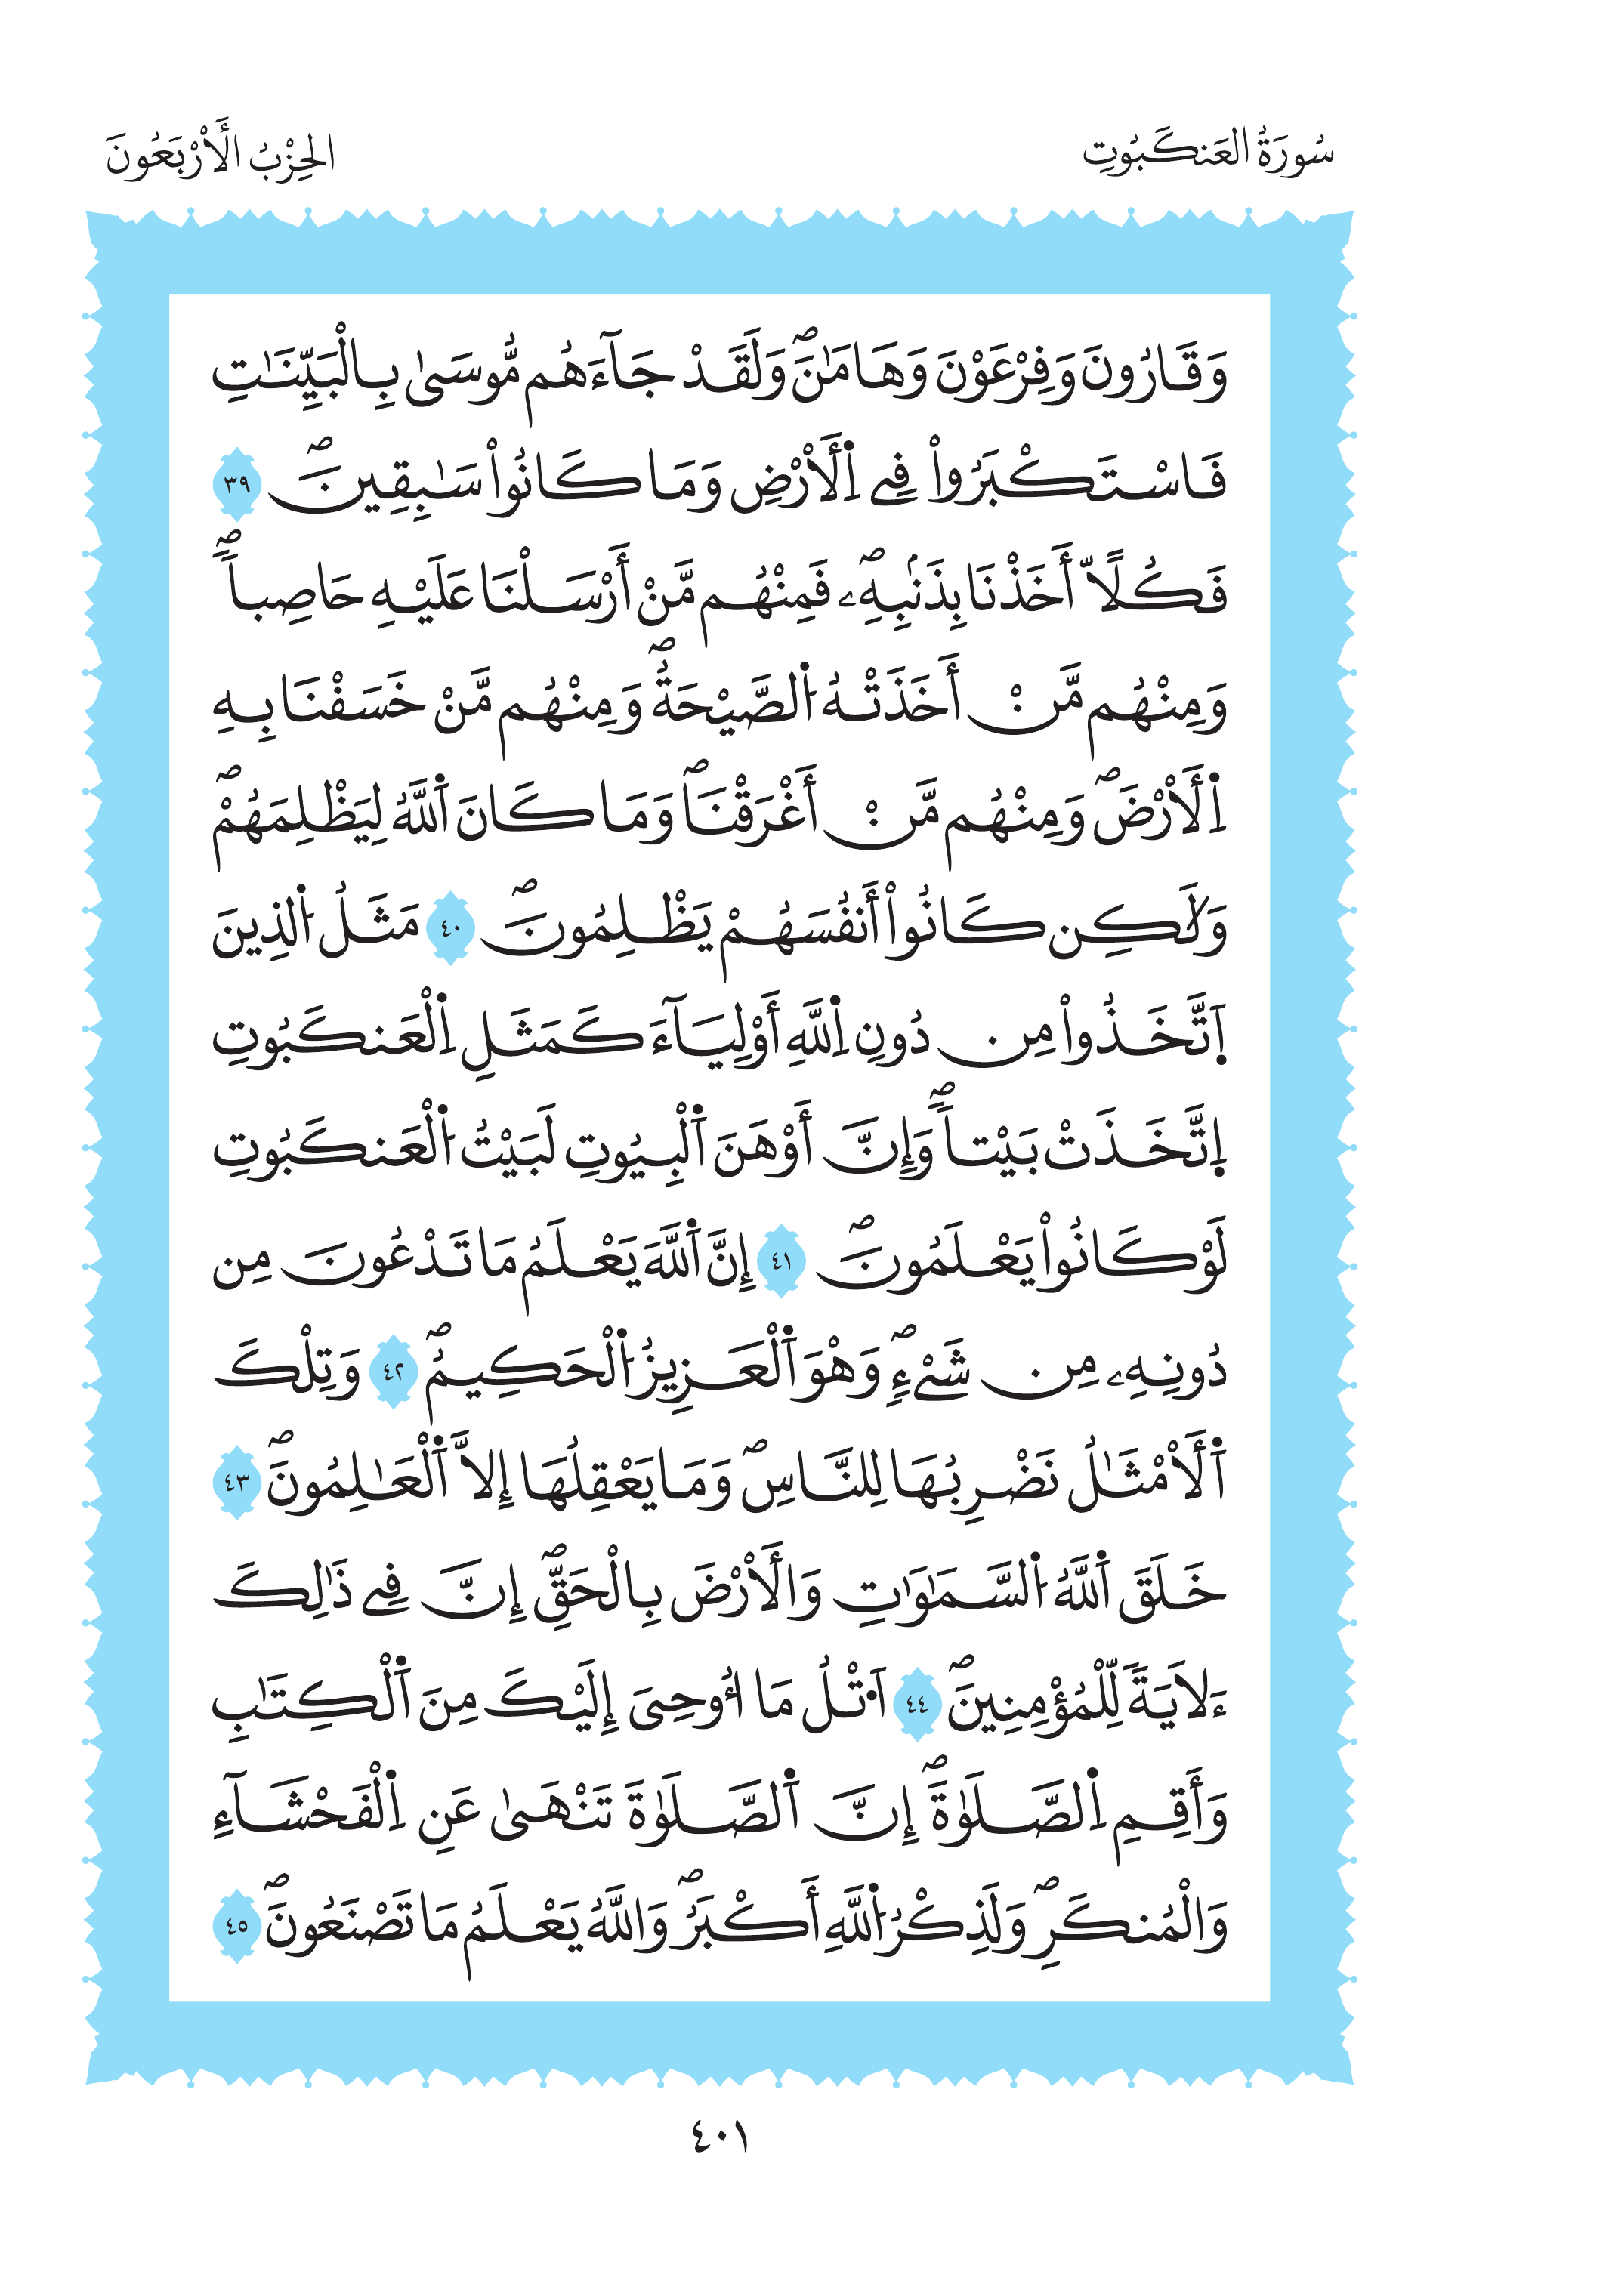 سُورَةُ العَنكَبُوتِ
الحِزْبُ الأَرْبَعُونَ
وَقَٰرُونَ وَفِرْعَوْنَ وَهَامَٰنَۖ وَلَقَدْ جَآءَهُم مُّوسَىٰ بِالْبَيِّنَٰتِ
فَاسْتَكْبَرُواْ فِے اِ۬لَارْضِ وَمَا كَانُواْ سَٰبِقِينَۖ ٣٩
فَكُلّاً أَخَذْنَا بِذَنۢبِهِۦۖ فَمِنْهُم مَّنْ أَرْسَلْنَا عَلَيْهِ حَاصِباٗۖ
وَمِنْهُم مَّنْ أَخَذَتْهُ اُ۬لصَّيْحَةُۖ وَمِنْهُم مَّنْ خَسَفْنَا بِهِ
اِ۬لَارْضَۖ وَمِنْهُم مَّنْ أَغْرَقْنَاۖ وَمَا كَانَ اَ۬للَّهُ لِيَظْلِمَهُمْۖ
وَلَٰكِن كَانُواْ أَنفُسَهُمْ يَظْلِمُونَۖ ٤٠ مَثَلُ اُ۬لذِينَ
اَ۪تَّخَذُواْ مِن دُونِ اِ۬للَّهِ أَوْلِيَآءَ كَمَثَلِ اِ۬لْعَنكَبُوتِ
اِ۪تَّخَذَتْ بَيْتاٗۖ وَإِنَّ أَوْهَنَ اَ۬لْبِيُوتِ لَبَيْتُ اُ۬لْعَنكَبُوتِ
لَوْ كَانُواْ يَعْلَمُونَۖ ٤١ إِنَّ اَ۬للَّهَ يَعْلَمُ مَا تَدْعُونَ مِن
دُونِهِۦ مِن شَےْءٖۖ وَهْوَ اَ۬لْعَزِيزُ اُ۬لْحَكِيمُۖ ٤٢ وَتِلْكَ
اَ۬لَامْثَٰلُ نَضْرِبُهَا لِلنَّاسِۖ وَمَا يَعْقِلُهَا إِلَّا اَ۬لْعَٰلِمُونَۖ ٤٣
خَلَقَ اَ۬للَّهُ اُ۬لسَّمَٰوَٰتِ وَالَارْضَ بِالْحَقِّۖ إِنَّ فِے ذَٰلِكَ
ءَلَايَةٗ لِّلْمُؤْمِنِينَۖ ٤٤ اَ۟تْلُ مَا أُوحِىَ إِلَيْكَ مِنَ اَ۬لْكِتَٰبِ
وَأَقِمِ اِ۬لصَّلَوٰةَۖ إِنَّ اَ۬لصَّلَوٰةَ تَنْهَىٰ عَنِ اِ۬لْفَحْشَآءِ
وَالْمُنكَرِۖ وَلَذِكْرُ اُ۬للَّهِ أَكْبَرُۖ وَاللَّهُ يَعْلَمُ مَا تَصْنَعُونَۖ ٤٥
٤٠١